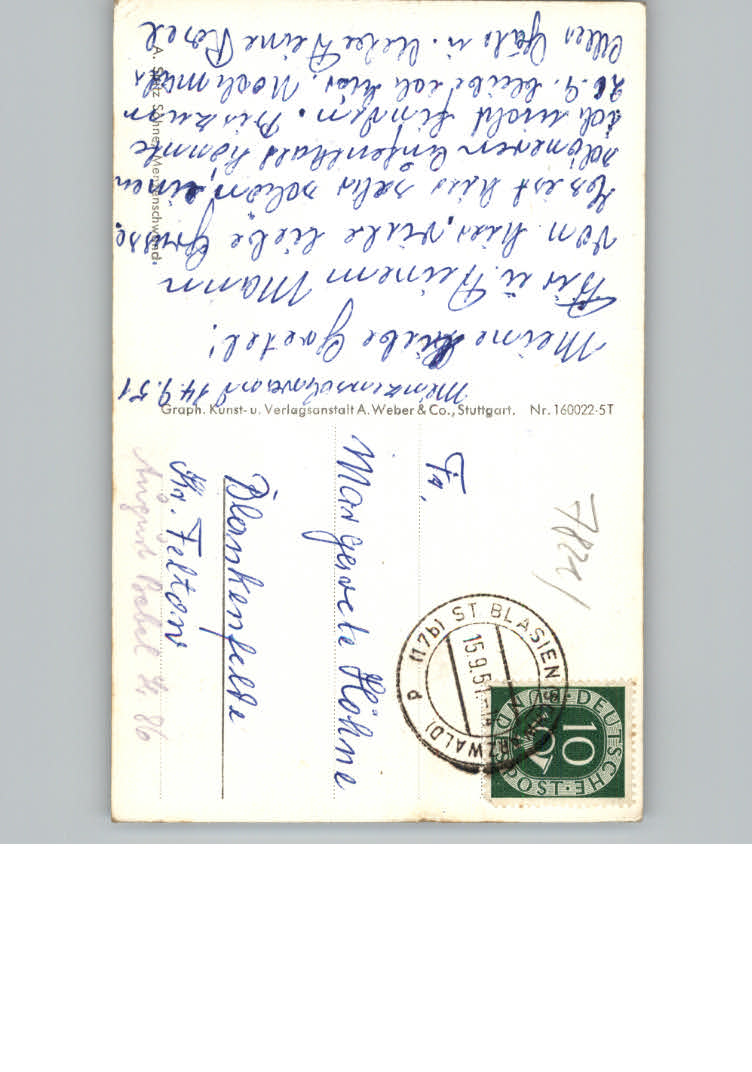 Menzenschwand 14.9.51
Meine liebe Gretel!
Dir u. Deinem Mann
von hier, viele liebe Grüsse.
Es ist hier sehr schön, einen
schöneren Aufenthalt könnte
ich nicht finden. Bis zum
20.9. bleibe ich hier. Nochmals
Alles Gute u. Liebe Deine Rosel
A. Sütz Söhne, Menzenschwand.
Graph. Kunst- u. Verlagsanstalt A. Weber & Co., Stuttgart. Nr. 160022-5T
Fr.
Margarete Höhne
Blankenfelde
Kr. Teltow
August Bebel Str. 86
(17b) ST. BLASIEN
(SCHWARZWALD)
15.9.51
P
DEUTSCHE BUNDESPOST
10